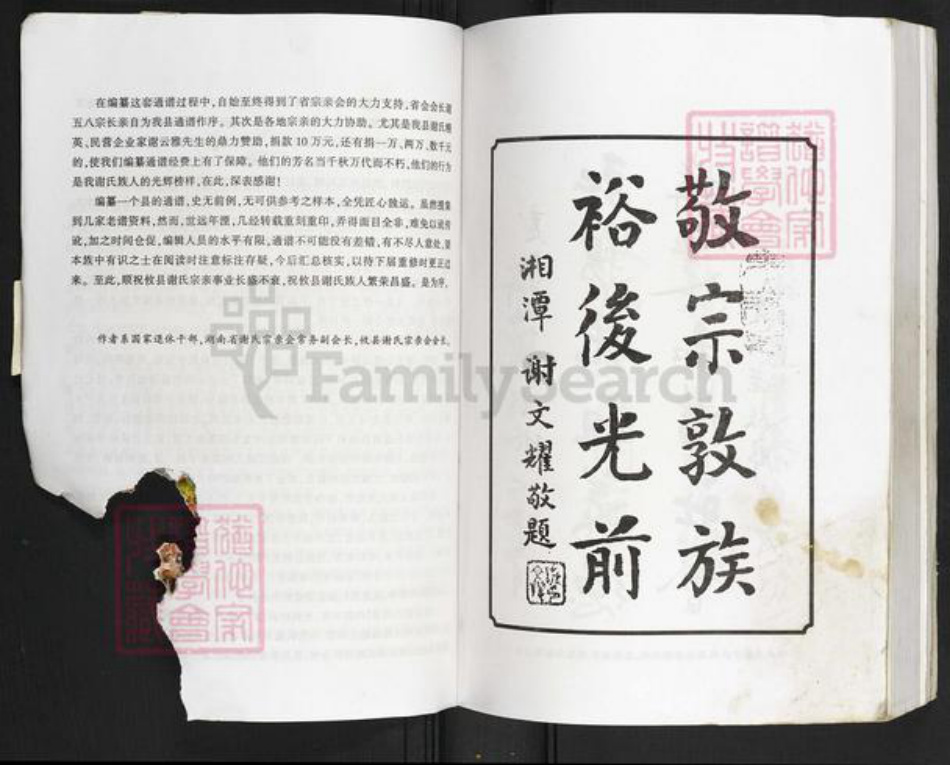 在编纂这套通谱过程中，自始至终得到了省宗亲会的大力支持，省会会长谢
五八宗长亲自为我县通谱作序。其次是各地宗亲的大力协助。尤其是我县谢氏精
英、民营企业家谢云雅先生的鼎力赞助，捐款10万元，还有捐一万、两万、数千元
的，使我们编纂通谱经费上有了保障。他们的芳名当千秋万代而不朽，他们的行为
是我谢氏族人的光辉榜样，在此，深表感谢！
编纂一个县的通谱，史无前例，无可供参考之样本，全凭匠心独运。虽然搜集
到几家老谱资料，然而，世远年湮，几经转载重刻重印，弄得面目全非，难免以讹传
讹，加之时间仓促，编辑人员的水平有限，通谱不可能没有差错，有不尽人意处，望
本族中有识之士在阅读时注意标注存疑，今后汇总核实，以待下届重修时更正过
来。至此，顺祝攸县谢氏宗亲事业长盛不衰，祝攸县谢氏族人繁荣昌盛。是为序。
作者系国家退休干部，湖南省谢氏宗亲会常务副会长，攸县谢氏宗亲会会长。
敬宗敦族
裕後光前
湘潭 谢文耀敬题
FamilySearch